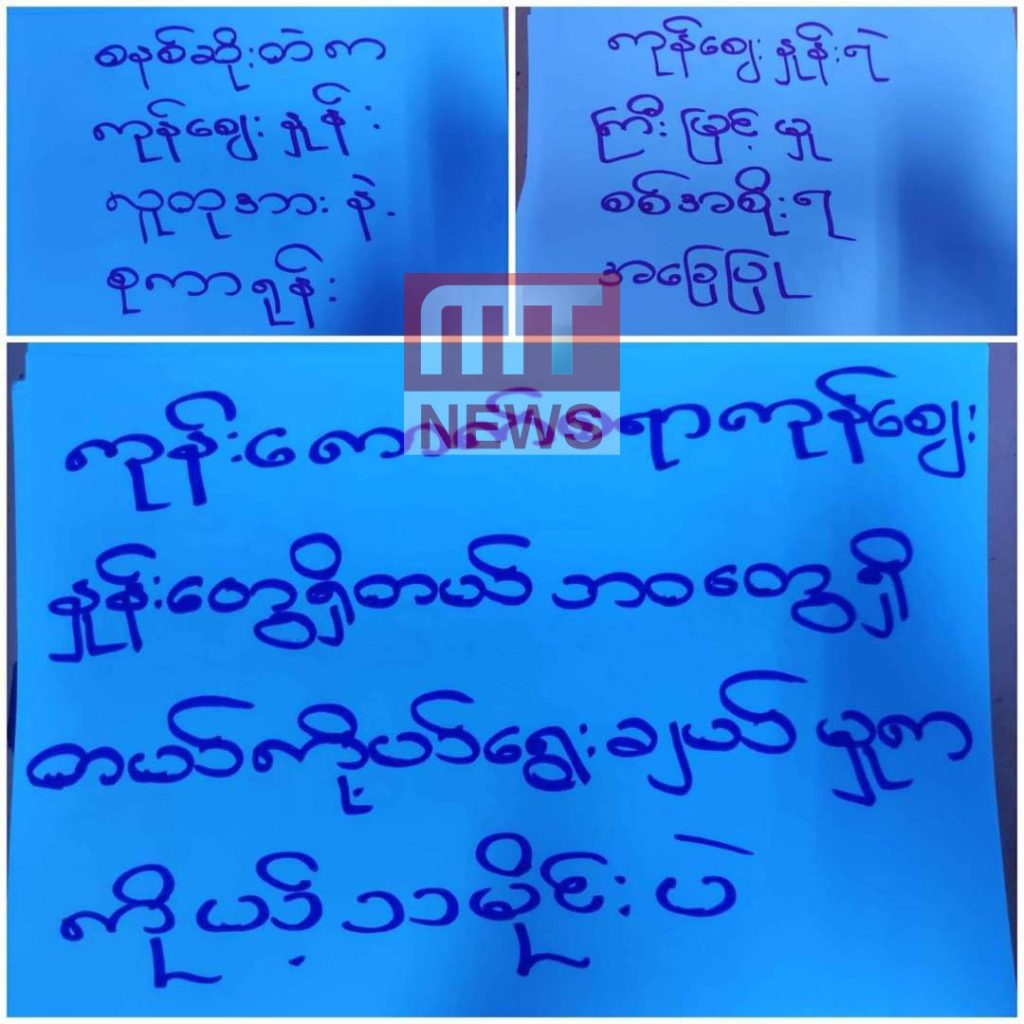 စနစ်ဆိုးထဲက
ကုန်ဈေးနှုန်း
လူတုအားနဲ့
စုကာရုန်း
ကုန်ဈေးနှုန်းရဲ့
ကြီးမြင့်မှု
စစ်အစိုးရ
အခြေပြု
MT
NEWS
ကုန်းကောက်စရာကုန်ဈေး
နှုန်းတွေရှိတယ် ဘဝတွေရှိ
တယ်ကိုယ်ရွေးချယ်မှုက
ကိုယ့်သမိုင်းပဲ